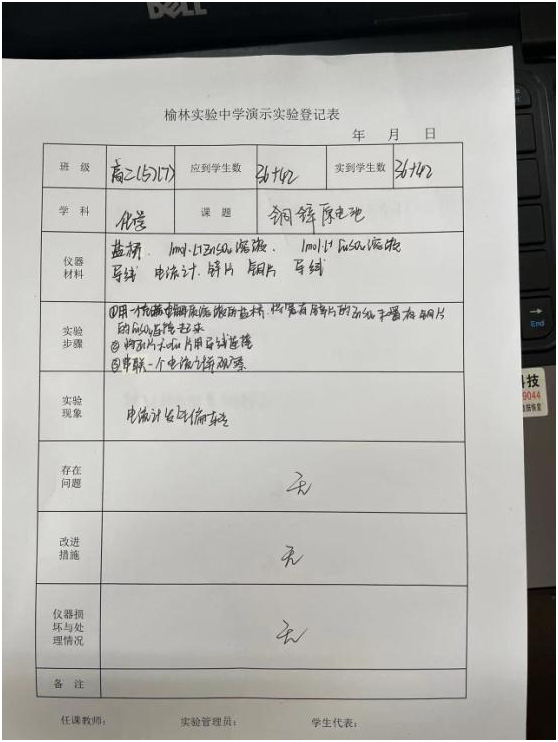 DELL
榆林实验中学演示实验登记表
年 月 日
班 级 高二(5)(7) 应到学生数 36+42 实到学生数 36+42
学 科 化学 课 题 铜锌原电池
仪器材料 盐桥、1mol·L-1ZnSO4溶液、1mol·L-1CuSO4溶液
导线 电流计、锌片 铜片 导线
实验步骤 ①用一个充满电解质溶液的盐桥,将置有锌片的ZnSO4和置有铜片
的CuSO4连接起来
②将Zn片和Cu片用导线连接
③串联一个电流计观察
实验现象 电流计发生偏转
存在问题 无
改进措施 无
仪器损坏与处理情况 无
备 注
任课教师: 实验管理员: 学生代表:
End
科技
9044